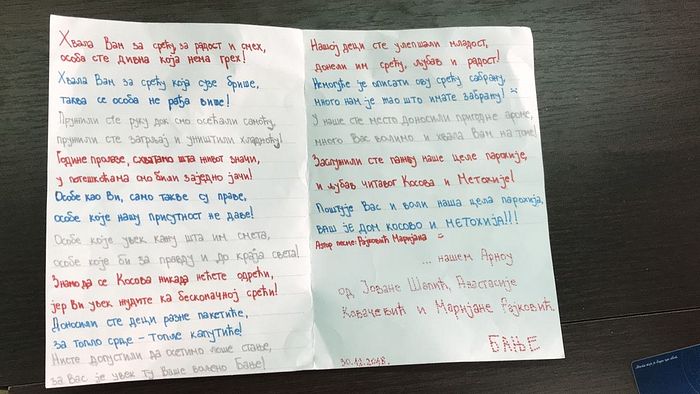 Хвала Вам за срећу, за радост и смех,
особа сте дивна која нема грех!
Хвала Вам за срећу која сузе брише,
таква се особа не рађа више!
Пружили сте руку док смо осећали самоћу,
пружили сте загрљај и уништили хладноћу!
Године пролазе, схватамо шта живот значи,
у потешкоћама смо били заједно јачи!
Особе као Ви, само такве су праве,
особе које нашу присутност не даве!
Особе које увек кажу шта им смета,
особе које би за правду и до краја света!
Знамо да се Косова никада нећете одрећи,
јер Ви увек нудите ка бесконачној срећи!
Доносили сте деци разне пакетиће,
за топло срце - топле капутиће!
Нисте допустили да осетимо лоше стање,
за Вас је увек ту Ваше вољено Бање!
Нашој деци сте улепшали младост,
донели им срећу, љубав и радост!
Немогуће је описати ову срећу сабрану,
много нам је жао што имате забрану!
У наше сте место доносили пригодне ароме,
много Вас волимо и хвала Вам на томе!
Заслужили сте пажњу наше целе парохије,
и љубав читавог Косова и Метохије!
Поштује Вас и воли наша цела парохија,
ВАШ ЈЕ ДОМ КОСОВО И МЕТОХИЈА!!!
Аутор песме: Рајковић Маријана
... нашем Арноу
од Јоване Шапић, Анастасије
Ковачевић и Маријане Рајковић
БАЊЕ
30.12.2018.